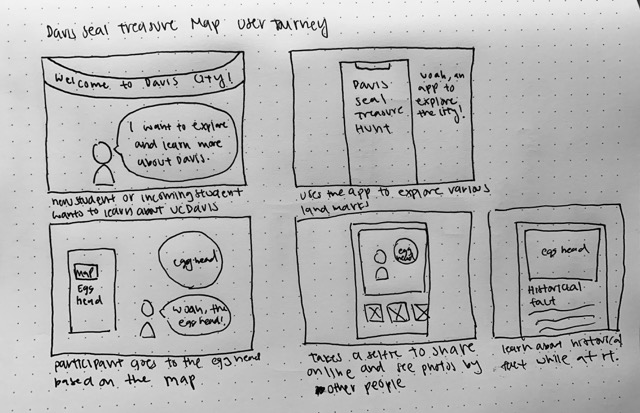 Davis Seal Treasure Map User Journey
Welcome to Davis City!
I want to explore
and learn more
about Davis.
new student or incoming student
wants to learn about UCDavis
Davis
Seal
Treasure
Hunt
woah, an
app to
explore
the city!
uses the app to explore various
landmarks
map
Egg
head
egghead
Woah, the
egghead!
participant goes to the egghead
based on the map
egg
head
takes a selfie to share
online and see photos by
other people
egg head
Historical
fact
learn about historical
fact while at it.